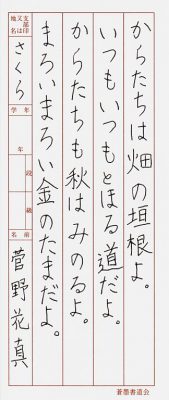 からたちは畑の垣根よ。
いつもいつもとほる道だよ。
からたちも秋はみのるよ。
まろいまろい金のたまだよ。
支部印又は地名
さくら
学年
年
段級
名前
菅野花真
蒼墨書道会